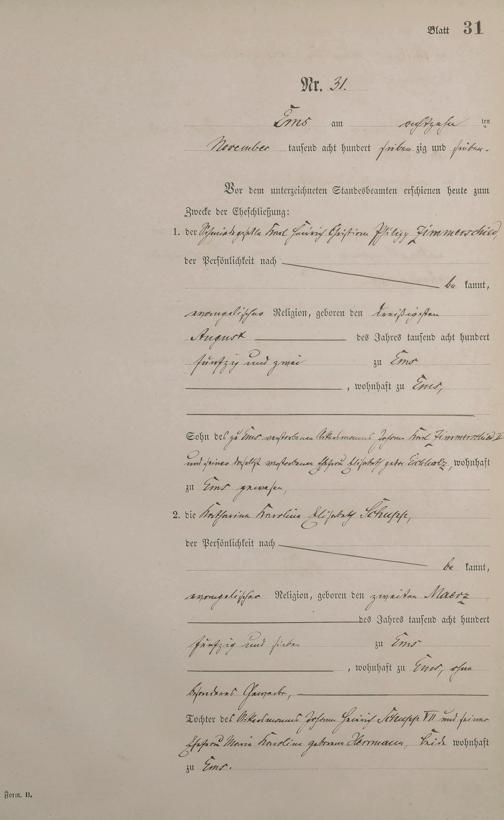 Blatt 31
Nr. 31.
Ems am achtzehn ten
November tausend acht hundert sieben zig und sieben.
Vor dem unterzeichneten Standesbeamten erschienen heute zum
Zwecke der Eheschließung:
1. der Schmiedgeselle Karl Heinrich Christian Philipp Zimmerschied
der Persönlichkeit nach
be kannt,
evangelischer Religion, geboren den dreißigsten
August des Jahres tausend acht hundert
fünfzig und zwei zu Ems
, wohnhaft zu Ems,
Sohn des zu Ems verstorbenen Ackersmanns Johann Karl Zimmerschied II
und seiner daselbst verstorbenen Ehefrau Elisabeth geb. , wohnhaft
zu Ems gewesen,
2. die Katharina Karoline Elisabeth Schupp,
der Persönlichkeit nach
be kannt,
evangelischer Religion, geboren den zweiten Maerz
des Jahres tausend acht hundert
fünfzig und sieben zu Ems
, wohnhaft zu Ems, ohne
besonderes Gewerbe,
Tochter des Ackersmanns Johann Heinrich Schupp VII und seiner
Ehefrau Maria Karoline geborene Herrmann, beide wohnhaft
zu Ems.
Form. B.